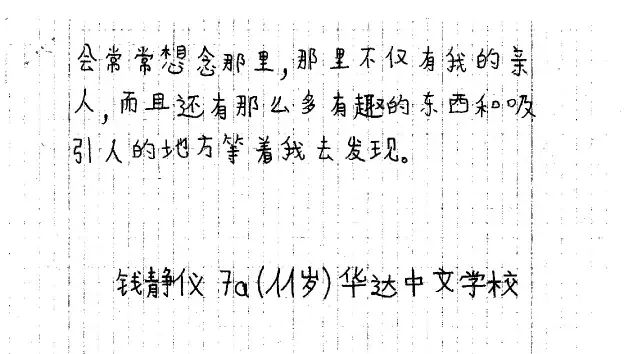 会常常想念那里,那里不仅有我的亲
人,而且还有那么多有趣的东西和吸
引人的地方等着我去发现。
钱静仪 7a(11岁)华达中文学校